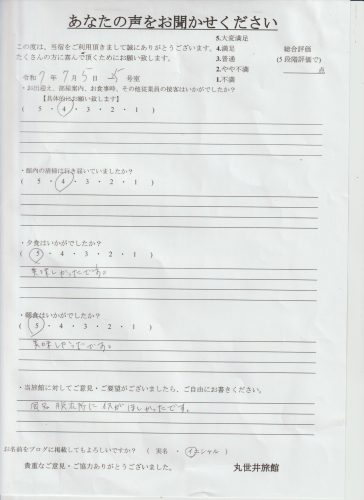 あなたの声をお聞かせください
この度は、当宿をご利用頂きまして誠にありがとうございます。
たくさんの方に喜んで頂くためにお願い致します。
5.大変満足
4.満足
3.普通
2.やや不満
1.不満
総合評価
(5段階評価で)
点
令和 7年 7月 5日 号室
・お出迎え、部屋案内、お食事時、その他従業員の接客はいかがでしたか?
【具体的にお願い致します】
( 5 ・ 4 ・ 3 ・ 2 ・ 1 )
・館内の清掃は行き届いていましたか?
( 5 ・ 4 ・ 3 ・ 2 ・ 1 )
・夕食はいかがでしたか?
( 5 ・ 4 ・ 3 ・ 2 ・ 1 )
美味しかったです。
・朝食はいかがでしたか?
( 5 ・ 4 ・ 3 ・ 2 ・ 1 )
美味しかったです。
・当旅館に対してご意見・ご要望がございましたら、ご自由にお書きください。
脱衣所に がほしかったです。
お名前をブログに掲載してもよろしいですか? ( 実名 ・ イニシャル )
貴重なご意見・ご協力ありがとうございました。
丸世井旅館